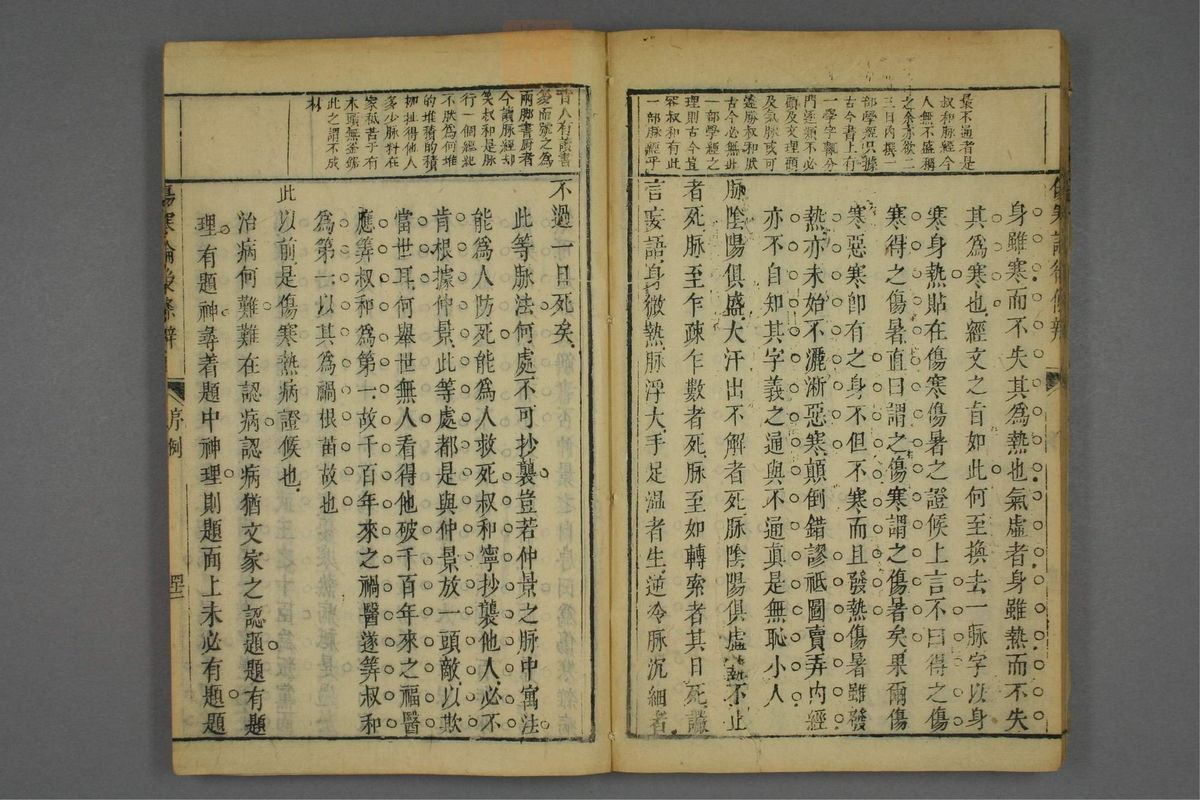 最不通者是
叔和脈經今
人無不盛稱
之余亦欲二
三日內撰一
部學經只據
古今書上有
一學字輒分
門蓬類不必
顧及文理題
及氣脈或可
蓬勝叔和狀
古今必無此
一部學經之
理則古今豈
容叔和有此
一部脈經乎
身雖寒而不失其為熱也氣虛者身雖熱而不失
其為寒也經文之旨如此何至換去一脈字以身
寒身熱貼在傷寒傷暑之證候上言不曰得之傷
寒得之傷暑直曰謂之傷寒謂之傷暑矣果爾傷
寒惡寒卽有之身不但不寒而且發熱傷暑雖發
熱亦未始不灑淅惡寒顛倒錯謬祗圖賣弄內經
亦不自知其字義之通與不通真是無恥小人
脈陰陽俱盛大汗出不解者死脈陰陽俱虛熱不止
者死脈至乍疎乍數者死脈至如轉索者其日死讝
言妄語身微熱脈浮大手足溫者生逆冷脈沉細者
昔人有讀書
而號之為
兩脚書廚者
今讀脈經却
笑叔和是脈
行一個經紀
不狀為何堆
的堆積的積
捱得他人
多少脈料在
家秪苦于有
木頭無釜
此之謂不成
材
不過一日死矣
此等脈法何處不可抄襲豈若仲景之脈中寓法
能為人防死能為人救死叔和寧抄襲他人必不
肯根據仲景此等處都是與仲景放一頭敵以欺
當世耳何舉世無人看得他破千百年來之福醫
應筭叔和為第一故千百年來之禍醫遂筭叔和
為第一以其為禍根苗故也
此以前是傷寒熱病證候也
治病何難難在認病認病猶文家之認題題有題
理有題神尋着題中神理則題面上未必有題題
傷寒論後條辨
序例